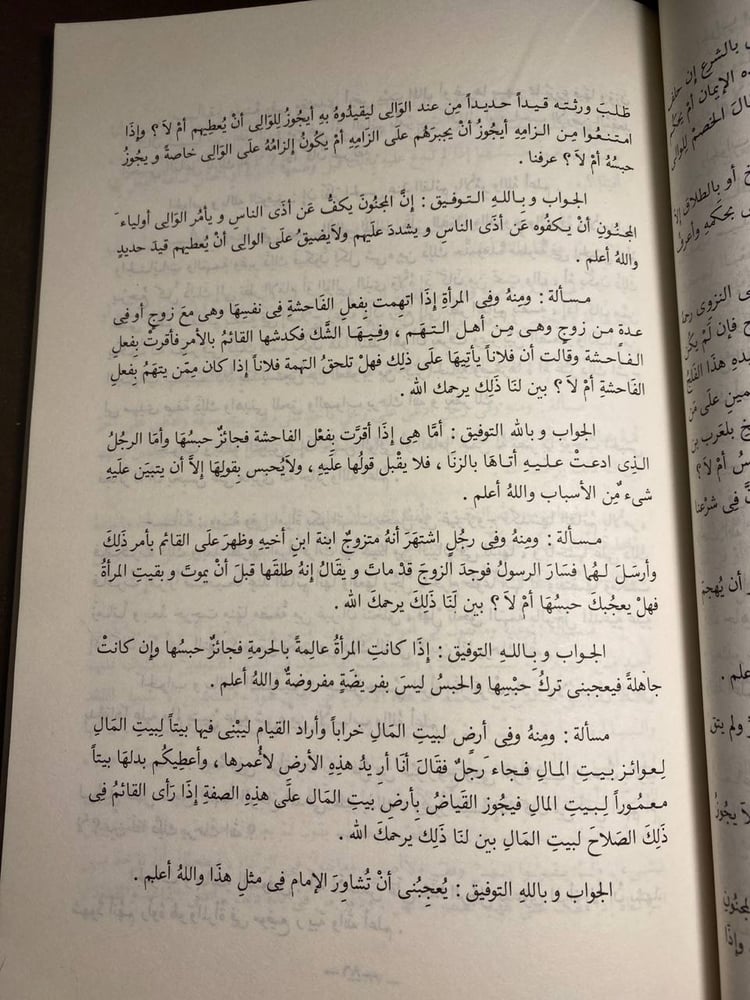 طَلبَ ورثته قيداً حديداً مِن عند الوَالِى ليقيدُوهُ بِهِ أيجوزُ لِلوَالِى أنْ يُعطِيهم أمْ لاَ ؟ وإذَا
امتنعُوا مِن الزامِهِ أيجوزُ أنْ يجبرَهُم علَى الزَامِهِ أمْ يكُونُ إلزامُهُ علَى الوَالِى خاصةً و يجُوزُ
حبسُهُ أمْ لاَ ؟ عرفنا .
الجواب و بِاللهِ التوفيق : إنَّ المجنُونَ يكفُّ عَن أذَى الناسِ و يأمُر الوَالِى أولياء َ
المجنُونِ أنْ يكفُوه عَن أذَى الناسِ و يشددَ علَيهم ولاَيضيقُ علَى الوالِى أنْ يُعطيهم قيدَ حديدٍ
واللهُ أعلم .
مسألة : ومِنهُ وفِى المرأةِ إذَا اتهِمت بِفعلِ الفَاحشةِ فِى نفسِهَا وهى معَ زوجٍ أو فِى
عدةٍ مِن زوجٍ وهى مِن أهلِ التهَم ، وفيهَا الشَّك فكدشها القائمُ بالأمرِ فأقرتْ بِفعلِ
الفاحشة وقالت أن فلاناً يأتِيهَا علَى ذلِك فهلْ تلحقُ التهمة فلاناً إذَا كان مِمّن يتهَمُ بِفعلِ
الفَاحشةِ أمْ لاَ ؟ بين لنَا ذَلِك يرحمك الله .
الجواب و بالله التوفيق : أمَّا هِى إذَا أقرَّت بِفعْل الفاحشة فجائزٌ حبسُهَا وأمَا الرجُلُ
الذِى ادعتْ عليهِ أتاهَا بالزنَا ، فلا يقْبل قولُها علَيهِ ، ولاَيُحبس بِقولِهَا إلاَّ أن يتبيَن علَيهِ
شىء ٌمِّن الأسباب واللهُ أعلم .
مسألة : ومِنهُ وفِى رجُلٍ اشتهَرَ أنهُ متزوجٌ ابنة ابنِ أخيهِ وظهرَ علَى القائم بأمر ذَلِكَ
وأرسَلَ لهُما فسَارَ الرسولُ فوجدَ الزوجَ قدْ ماتَ و يقَالُ إنهُ طلقَها قبلَ أنْ يموتَ و بقيتِ المرأةُ
فهلْ يعجُبكَ حبسُهَا أمْ لاَ ؟ بين لَنَا ذَلكَ يرحمكَ الله .
الجواب و بِاللهِ التوفيق : إذَا كانتِ المرأةُ عالِمةً بالحرمةِ فجائزٌ حبسُها وإن كانتْ
جاهلةً فيعجبنى تركُ حبْسِها والحبسُ ليسَ بفر يضَةٍ مفروضةٌ واللهُ أعلم .
مسألة : ومِنهُ وفِى أرضٍ لبيتِ المَالِ خراباً وأراد القيام لِيبْنِى فيها بيتاً لِبيتِ المَالِ
لِعوائزِ بيتِ المالِ فجاء َ رجلٌ فقَالَ أنَا أر يدُ هذِهِ الأرضَ لأعُمرها ، وأعطِيكُم بدلهَا بيتاً
معمُوراً لِبيتِ المالِ فيجُوز القيَاضُ بِأرضِ بيتِ المَال علَى هذِهِ الصفةِ إذَا رأى القائمُ فِى
ذَلِكَ الصَلاَحَ لبيتِ المَالِ بين لنا ذَلِكَ يرحمكَ الله .
الجواب و بالله التوفيق : يُعجِبُنى أنْ تُشاوِرَ الإمام فِى مثلِ هذَا واللهُ أعلم .